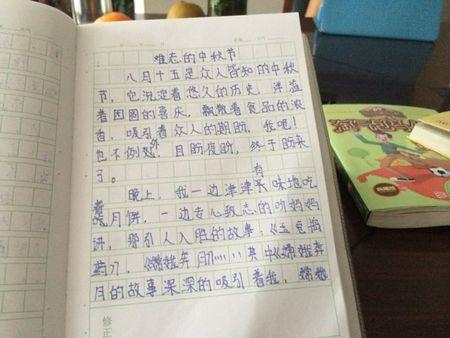 难忘的中秋节
八月十五是众人皆知的中秋
节，它沉淀着悠久的历史，洋溢
着团圆的喜庆，飘散着食品的浓
香，吸引着众人的期盼，我吧！
也不例外，日盼夜盼，终于盼来
了。
晚上，我一边津津有味地吃
着月饼，一边专心致志的听妈妈
讲，引人入胜的故事：《玉兔捣
药》，《嫦娥奔月》……其中《嫦娥奔
月的故事深深的吸引着我，嫦娥
修正